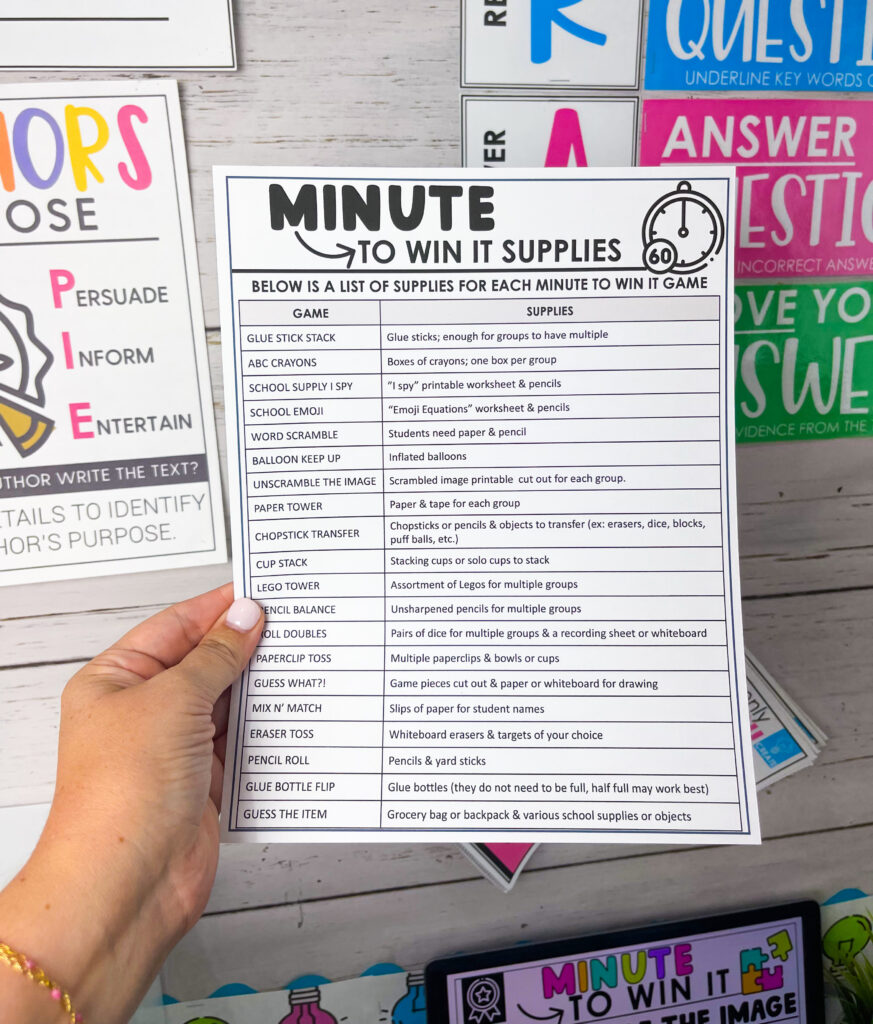 ORS
OSE
PERSUADE
INFORM
ENTERTAIN
AUTHOR WRITE THE TEXT?
DETAILS TO IDENTIFY
PURPOSE.
R
QUESTI
UNDERLINE KEY WORDS
A
ANSWER
ESTIO
INCORRECT ANSW
OVE YO
SWE
VIDENCE FROM THE
MINUTE
TO WIN IT SUPPLIES
60
BELOW IS A LIST OF SUPPLIES FOR EACH MINUTE TO WIN IT GAME
GAME SUPPLIES
GLUE STICK STACK Glue sticks; enough for groups to have multiple
ABC CRAYONS Boxes of crayons; one box per group
SCHOOL SUPPLY I SPY “I spy” printable worksheet & pencils
SCHOOL EMOJI “Emoji Equations” worksheet & pencils
WORD SCRAMBLE Students need paper & pencil
BALLOON KEEP UP Inflated balloons
UNSCRAMBLE THE IMAGE Scrambled image printable cut out for each group.
PAPER TOWER Paper & tape for each group
CHOPSTICK TRANSFER Chopsticks or pencils & objects to transfer (ex: erasers, dice, blocks,
puff balls, etc.)
CUP STACK Stacking cups or solo cups to stack
LEGO TOWER Assortment of Legos for multiple groups
PENCIL BALANCE Unsharpened pencils for multiple groups
ROLL DOUBLES Pairs of dice for multiple groups & a recording sheet or whiteboard
PAPERCLIP TOSS Multiple paperclips & bowls or cups
GUESS WHAT?! Game pieces cut out & paper or whiteboard for drawing
MIX N’ MATCH Slips of paper for student names
ERASER TOSS Whiteboard erasers & targets of your choice
PENCIL ROLL Pencils & yard sticks
GLUE BOTTLE FLIP Glue bottles (they do not need to be full, half full may work best)
GUESS THE ITEM Grocery bag or backpack & various school supplies or objects
MINUTE
TO WIN IT
THE IMAGE